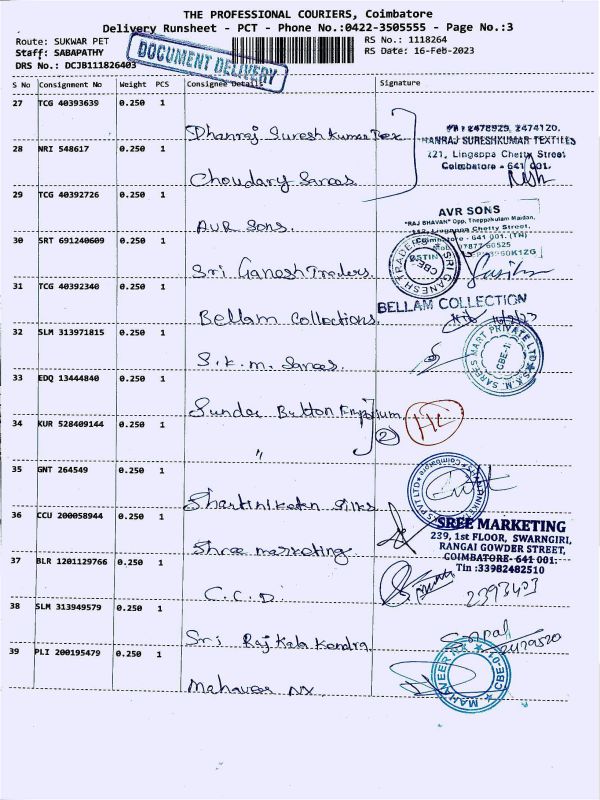 THE PROFESSIONAL COURIERS, Coimbatore
Delivery Runsheet - PCT - Phone No.:0422-3505555 - Page No.:3
Route: SUKWAR PET
RS No.: 1118264
Staff: SABAPATHY
RS Date: 16-Feb-2023
DRS No.: DCJB111826403
DOCUMENT DELIVERY
S No Consignment No Weight PCS Consignee Details Signature
27 TCG 40393639 0.250 1
Dhanraj Sureshkumar Tex
2478929, 2474120.
HANRAJ SURESHKUMAR TEXTILES
221, Lingappa Chetty Street
Coimbatore - 641 001.
28 NRI 548617 0.250 1
Choudary Sarees
29 TCG 40392726 0.250 1
AVR Sons.
AVR SONS
"RAJ BHAVAN" Opp. Theppakulam Maidan,
Lingappa Chetty Street,
Coimbatore - 641 001. (TN)
30 SRT 691240609 0.250 1
Sri Ganesh Traders
SRI GANESH TRADERS
CBE-1
31 TCG 40392340 0.250 1
Bellam Collections
BELLAM COLLECTION
32 SLM 313971815 0.250 1
S.K.M. Sarees
S.K.M. SAREES MART PRIVATE LTD
CBE-1
33 EDQ 13444840 0.250 1
Sunder Button Emporium
34 KUR 528409144 0.250 1
"
2
35 GNT 264549 0.250 1
Shantiniketan Silks
36 CCU 200058944 0.250 1
Shree Marketing
SREE MARKETING
239, 1st FLOOR, SWARNGIRI,
RANGAI GOWDER STREET,
COIMBATORE- 641 001.
Tin :33982482510
37 BLR 1201129766 0.250 1
C.C.D.
38 SLM 313949579 0.250 1
Sri Raj Kala Kendra
39 PLI 200195479 0.250 1
Mahaveer NX
MAHAVEER NX
CBE-01